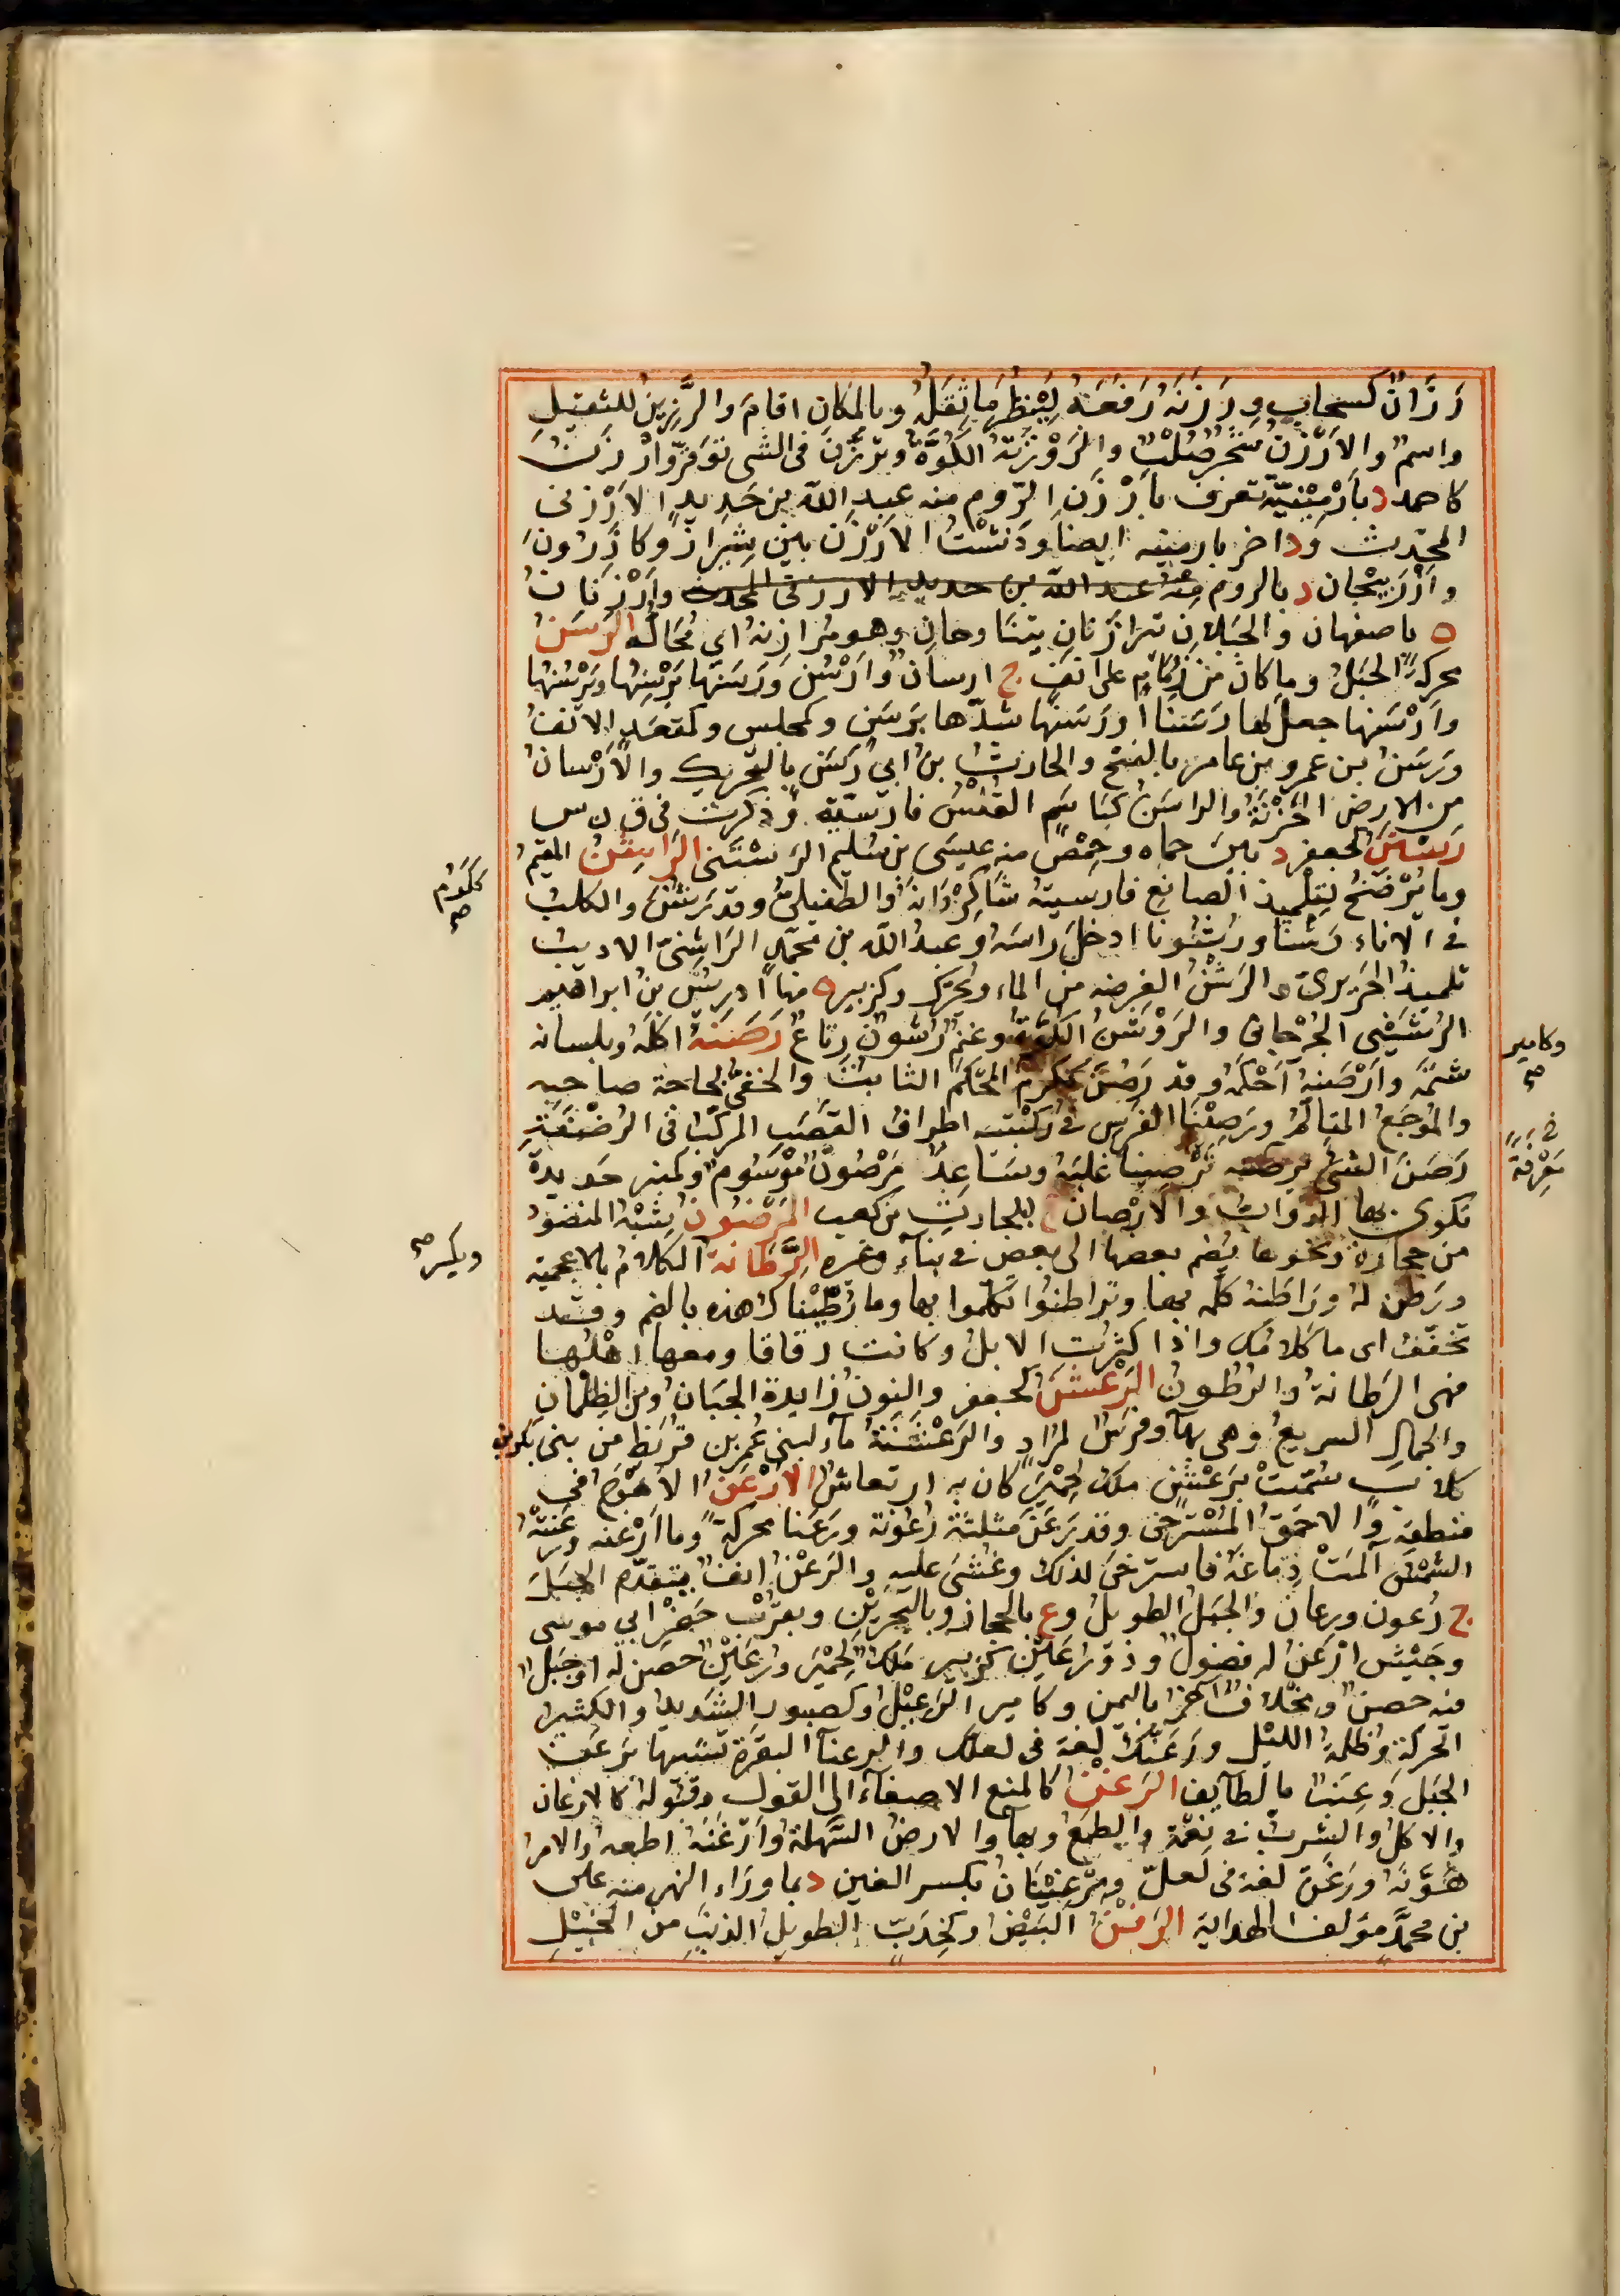 رَزَانٌ كسحابٍ ورَزَنَهُ رَفَعَهُ لِيَنْظُرَ ما ثِقَلُهُ وبالمكانِ اقامَ والرَّزِينُ للثقيلِ
واسمٌ والاَرْزَنُ شَجَرٌ صُلْبٌ والرَوْزَنَةُ الكُوَّةُ وتَرَزَّنَ فى الشى تَوَقَّرَ وارْزَنُ
كاحمد د بارْمِيْنِيَّةَ تعرف بأَرْزَنِ الرّوم منه عبد الله بن حَدِيدٍ الارْزنى
المحدّث ود اخر بارمينيه ايضا ودَشْتُ الاَرْزَن بين شِيرازَ وكازَرُونَ
وارْزَنِجان د بالروم منه عبد الله بن حديد الارزنى المحدث وارْزَنانُ
ه باصفهان والجَبَلانِ يَتَرازَنانِ يتناوحانِ وهو مُرازِنهُ اى مُحَالُّهُ الرَسَنُ
محركةً الحَبْلُ وما كان من زِمَامٍ على انفٍ ج ارسانٌ وارْسُنٌ ورَسَنَها يَرْسِنُها ويَرْسُنُها
وارْسَنها جعل لها رَسَنًا اورَسَنَها شدّها برَسَنٍ وكمجلسٍ ومقعَدٍ الانفُ
ورَسْنُ بن عمرو بن عامر بالفتح والحارث بن ابى رَسَنٍ بالتحريك والاَرْسانُ
من الارض الحَزْنَةُ والراسَنُ كيَاسَمٍ القَنَسُ فارسيّة وذكرت فى ق ن س
رَسْتَنُ كجعفر د بين حماه وحِمْص منه عيسى بن سُليم الرَسْتَنى الرَاشِنُ المقيمُ
وما يُرْضَخُ لِتلميذ الصانِعِ فارسيتهُ شاكِرْدانَه والطفيلىُّ وقد رَشَنَ والكلبُ
فى الاناء رَشْنًا ورُشُونا ادخل راسه وعبد الله بن محمّدٍ الراشِنىّ الاديبُ
تلميذُ الحَريرىّ والرَشْنُ الفرضه من الماء ويُحَرَّك وكزبير ه منها ادريسُ بن ابراهيم
الرُشَيْنِى الجُرْجانى والرَوْشَنُ الكُوَّةُ وغنمٌ رُشُونٌ رِتاعٌ رَصَنَهُ اكلَهُ وبلسانه
شتمَه وارْصَنَهُ احْكَمَهُ وقد رَصُنَ ككَرُمَ المحْكم الثابتُ والحَفِىُّ بحاجة صاحبه
والمُوجَعُ المتالمُ ورَصِيْنَا الفرس فى رُكْبته اطرافُ القَصَب المركّب فى الرَضْفَةِ
رَصَنَ الشىء ترصّنه تَرْصينا غلبه وساعدٌ مَرْصُونٌ مَوْسُومٌ وكمنبرٍ حديدة
تكوى بها الدوابُّ والارْصانُ ع للحارِثِ بن كعبٍ المَرْضُونُ شِبْهُ المنضُودِ
من حجارة ونحوها يضم بعضها الى بعض فى بناءٍ وغيره الرَّطَانة الكلامُ بالاعجميّة
ورَطَن له ورَاطَنَه كلّمه بها وتراطنُوا تكلّموا بها وما رُطَّيْناك هذه بالضم وقد
تخفّف اى ما كلامُك واذا كثُرت الابلُ وكانت رفاقا ومعها اهلُها
فهى الرَطانةُ والرَطُونُ الرَعْشَنُ كجعفر والنونُ زايدةٌ الجَبَانُ ومن الظِلْمانِ
والجمالِ السريعُ وهى بهآء وفرسٌ لمُرادٍ والرَعْشَنَةُ مآء لبنى عُمر بن قُرَيظٍ من بنى بكر بن
كلابٍ سُمّيتْ برَعْشَنٍ ملك لِحِمْيَرَ كان به ارتعاشٌ الارْعَنُ الاَهْوَجُ فى
منطقه والاحمقُ المُسْتَرخى وقد رَعَنَ مثلثةً رُعونةً ورَعَنا محركةً وما ارْعَنَه ورَعَنَتْهُ
الشمسُ آلمَتْ دِماغَهُ فاسترخَى لذلك وغُشى عليه والرَعْنُ انفٌ يتقدّم الجَبَلَ
ج رُعون ورِعان والجبلُ الطويلُ وع بالحجاز وبالبحرَيْن وبقربِ حَفَرِ ابى موسى
وجَيْشٌ ارْعَنُ له فضولٌ وذو رُعَيْن كزبير مَلك لحِمْيَرَ ورُعَيْنٌ حصن له اوجَبَلٌ
فيه حصنٌ ومخلاف آخر باليمن وكامير الرَعِيْلُ وكصبور الشديدُ والكثيرُ
الحركةِ وظلمةُ الليل ورَعَنَّك لغة فى لعلّك والرعناءُ البقرة تشبيها برَعْنِ
الجَبَلِ وعِنَبٌ بالطايف الرَغْنُ كالمنع الاصغآء الى القول وقبوله كالارغان
والاكلُ والشربُ فى نعْمةٍ والطمَعُ وبهآء الارضُ السَّهلةُ وارْغَنَهُ اطمعه والامرَ
هَوَّنَه ورَغَنَّ لغة فى لعلّ ومَرْغِيْنانُ بكسر الغين د بما وراء النهر منه على
بن محمدٍ مؤلفُ الهداية الرَفْنُ البَيْضُ وكخِدَبٍّ الطويل الذنبِ من الخيلِ
ككَرُمَ صح
وكامير صح
فى
مَعْرِفَةٍ
ويكسر صح